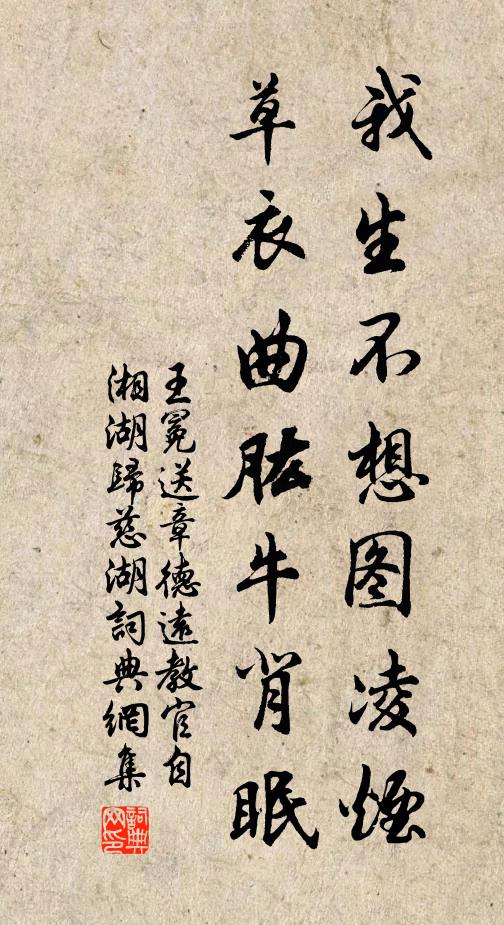 我生不想图凌烟
草衣曲肱牛背眠
王冕送章德遠教官自
湘湖歸慈湖詞典網集
詞典网印